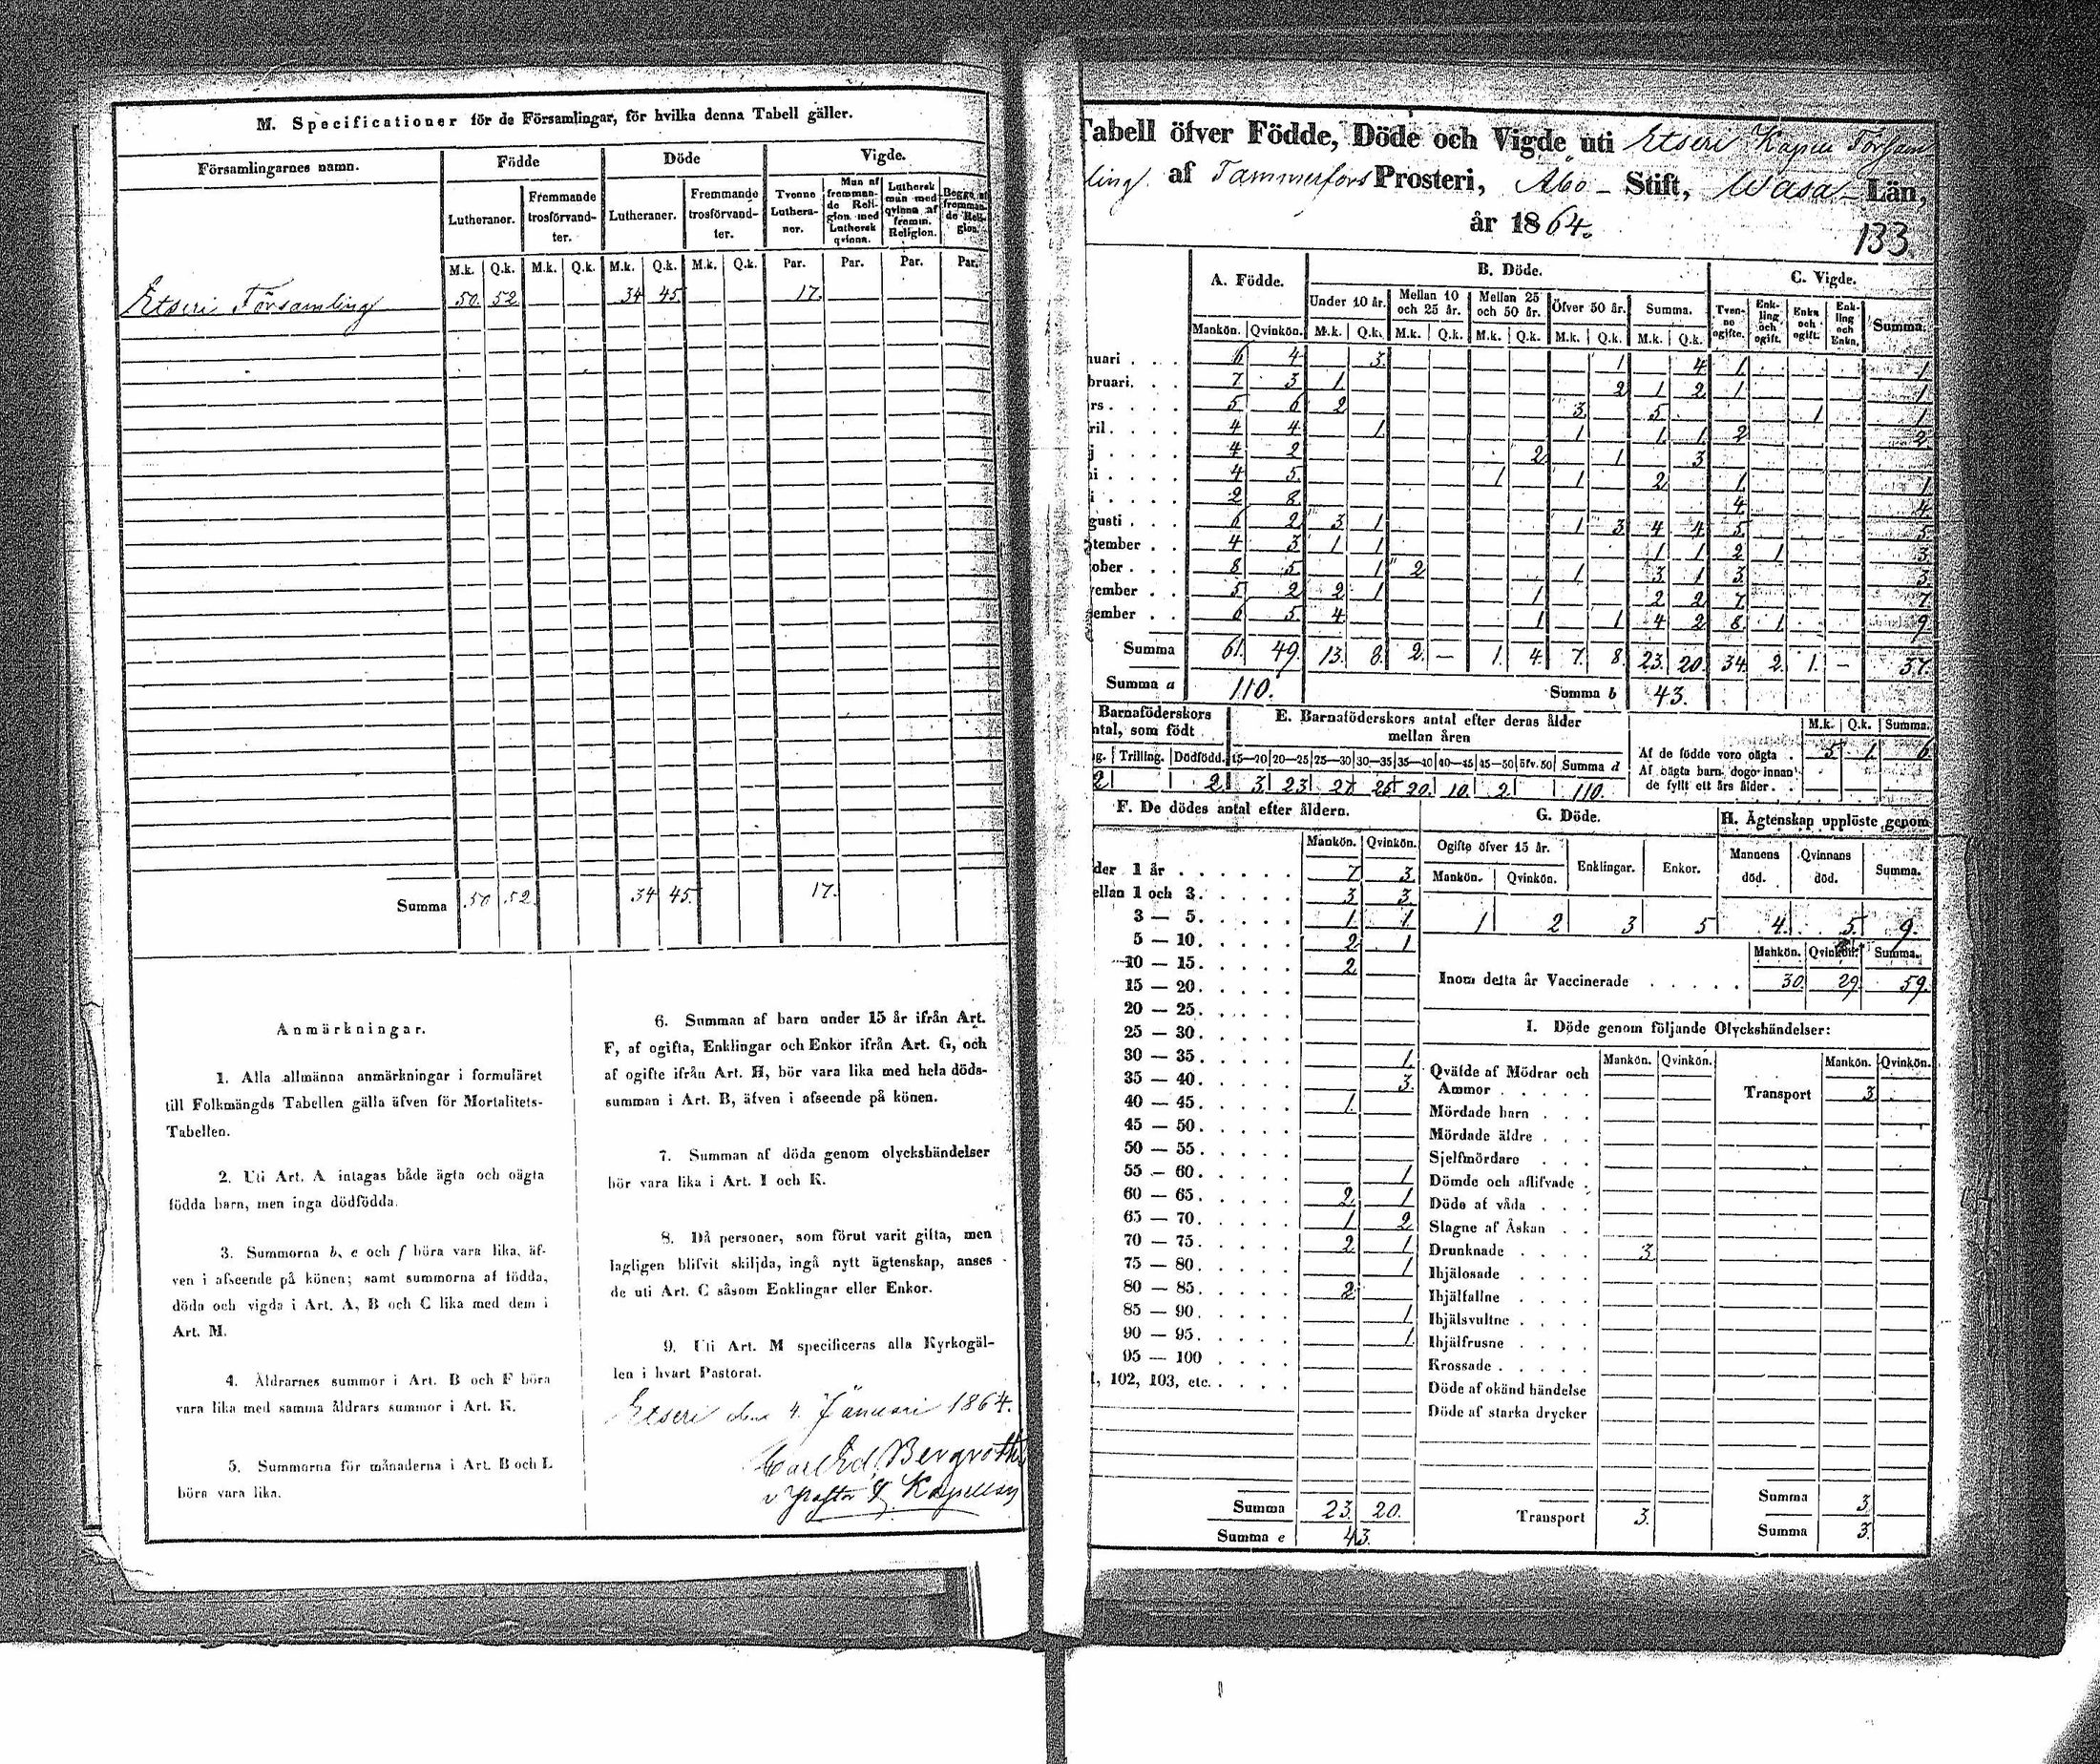 M. Specificationer för de Församlingar, för hvilka denna Tabell gäller.
Församlingarnes namn. Födde Döde Vigde.
Lutheraner. Fremmande trosförvandter. Lutheraner. Fremmande trosförvandter. Tvenne Lutheraner. Man af fremmande Religion med Luthersk qvinna. Luthersk man med qvinna af fremm. Religion. Begge af fremmande Religion.
M.k. Q.k. M.k. Q.k. M.k. Q.k. M.k. Q.k. Par. Par. Par. Par.
Etseri Församling 50. 52 34 45 17.
Summa 50 52 34 45 17.
Anmärkningar.
1. Alla allmänna anmärkningar i formuläret
till Folkmängds Tabellen gälla äfven för Mortalitets-
Tabellen.
2. Uti Art. A intagas både ägta och oägta
födda barn, men inga dödfödda.
3. Summorna b, e och f böra vara lika, äf-
ven i afseende på könen; samt summorna af födda,
döda och vigda i Art. A, B och C lika med dem i
Art. M.
4. Åldrarnes summor i Art. B och F böra
vara lika med samma åldrars summor i Art. K.
5. Summorna för månaderna i Art. B och L
böra vara lika.
6. Summan af barn under 15 år ifrån Art.
F, af ogifta, Enklingar och Enkor ifrån Art. G, och
af ogifte ifrån Art. H, bör vara lika med hela döds-
summan i Art. B, äfven i afseende på könen.
7. Summan af döda genom olyckshändelser
bör vara lika i Art. I och K.
8. Då personer, som förut varit gifta, men
lagligen blifvit skiljda, ingå nytt ägtenskap, anses
de uti Art. C såsom Enklingar eller Enkor.
9. Uti Art. M specificeras alla Kyrkogäl-
len i hvart Pastorat.
Etseri den 4. Januari 1864.
Carl Ed. Bergroth
Tabell öfver Födde, Döde och Vigde uti Etseri Kapell Försam
ling. af Tammerfors Prosteri, Åbo Stift, Wasa Län,
år 1864.
133.
A. Födde. B. Döde. C. Vigde.
Under 10 år. Mellan 10 och 25 år. Mellan 25 och 50 år. Öfver 50 år. Summa. Tvenno ogifte. Enkling och ogift. Enka och ogift. Enkling och Enka. Summa.
Mankön. Qvinkön. M.k. Q.k. M.k. Q.k. M.k. Q.k. M.k. Q.k. M.k. Q.k.
nuari . . . 6 4 3. 1 4 1. 1
bruari. . . 7 3 1. 2 1 2 1 1
rs . . . . 5 6 2 3. 5 1 1
ril . . . . 4 4 1. 1 1 1 2 2
j . . . . 4 2 2 1 3
i . . . . 4 5. 1 1 2 1 1
i . . . . 2 8 4 4
gusti . . . 6 2 3 1 1 3 4 4 5 5
tember . . 4 3 1 1 1 1 2 1 3
ober . . . 8 5 1 2 1 3 1 3 3
vember . . 5 2 2 1 1 2 2 7 7
ember . . 6 5 4 1 1 4 2 8 1 9
Summa 61. 49. 13. 8. 2. — 1. 4. 7. 8. 23. 20. 34. 2. 1. — 37.
Summa a 110. Summa b 43.
Barnaföderskors
ntal, som född
g. Trilling. Dödfödd.
2 2
E. Barnaföderskors antal efter deras ålder
mellan åren
15—20 20—25 25—30 30—35 35—40 40—45 45—50 öfv. 50 Summa d
3 23 27 25 20. 10. 2 110.
M.k. Q.k. Summa.
Af de födde voro oägta . 5 1. 6
Af oägta barn dogo innan
de fyllt ett års ålder . .
F. De dödes antal efter åldern.
Mankön. Qvinkön.
der 1 år . . . . . . 7 3
ellan 1 och 3. . . . . 3 3
3 — 5. . . . . 1 1
5 — 10. . . . . 2 1
10 — 15. . . . . 2
15 — 20. . . . .
20 — 25. . . . .
25 — 30. . . . .
30 — 35. . . . . 1.
35 — 40. . . . . 3.
40 — 45. . . . . 1.
45 — 50. . . . .
50 — 55. . . . .
55 — 60. . . . . 1
60 — 65. . . . . 2 1
65 — 70. . . . . 1 2
70 — 75. . . . . 2 1
75 — 80. . . . . 1
80 — 85. . . . . 2
85 — 90. . . . . 1
90 — 95. . . . . 1.
95 — 100 . . . .
, 102, 103, etc. . . . .
Summa 23. 20.
Summa e 43.
G. Döde.
Ogifte öfver 15 år. Enklingar. Enkor.
Mankön. Qvinkön.
1 2 3 5
H. Ägtenskap upplöste genom
Mannens död. Qvinnans död. Summa.
4. 5. 9.
Mankön. Qvinkön. Summa.
Inom detta år Vaccinerade . . . . . 30 29 59.
I. Döde genom följande Olyckshändelser:
Mankön. Qvinkön. Mankön. Qvinkön.
Qväfde af Mödrar och
Ammor . . . . .
Transport 3
Mördade barn . . .
Mördade äldre . . .
Sjelfmördare . . .
Dömde och aflifvade .
Döde af våda . . .
Slagne af Åskan . .
Drunknade . . . . 3
Ihjälosade . . . .
Ihjälfallne . . . .
Ihjälsvultne . . . .
Ihjälfrusne . . . .
Krossade . . . . .
Döde af okänd händelse
Döde af starka drycker
Transport 3.
Summa 3.
Summa 3.